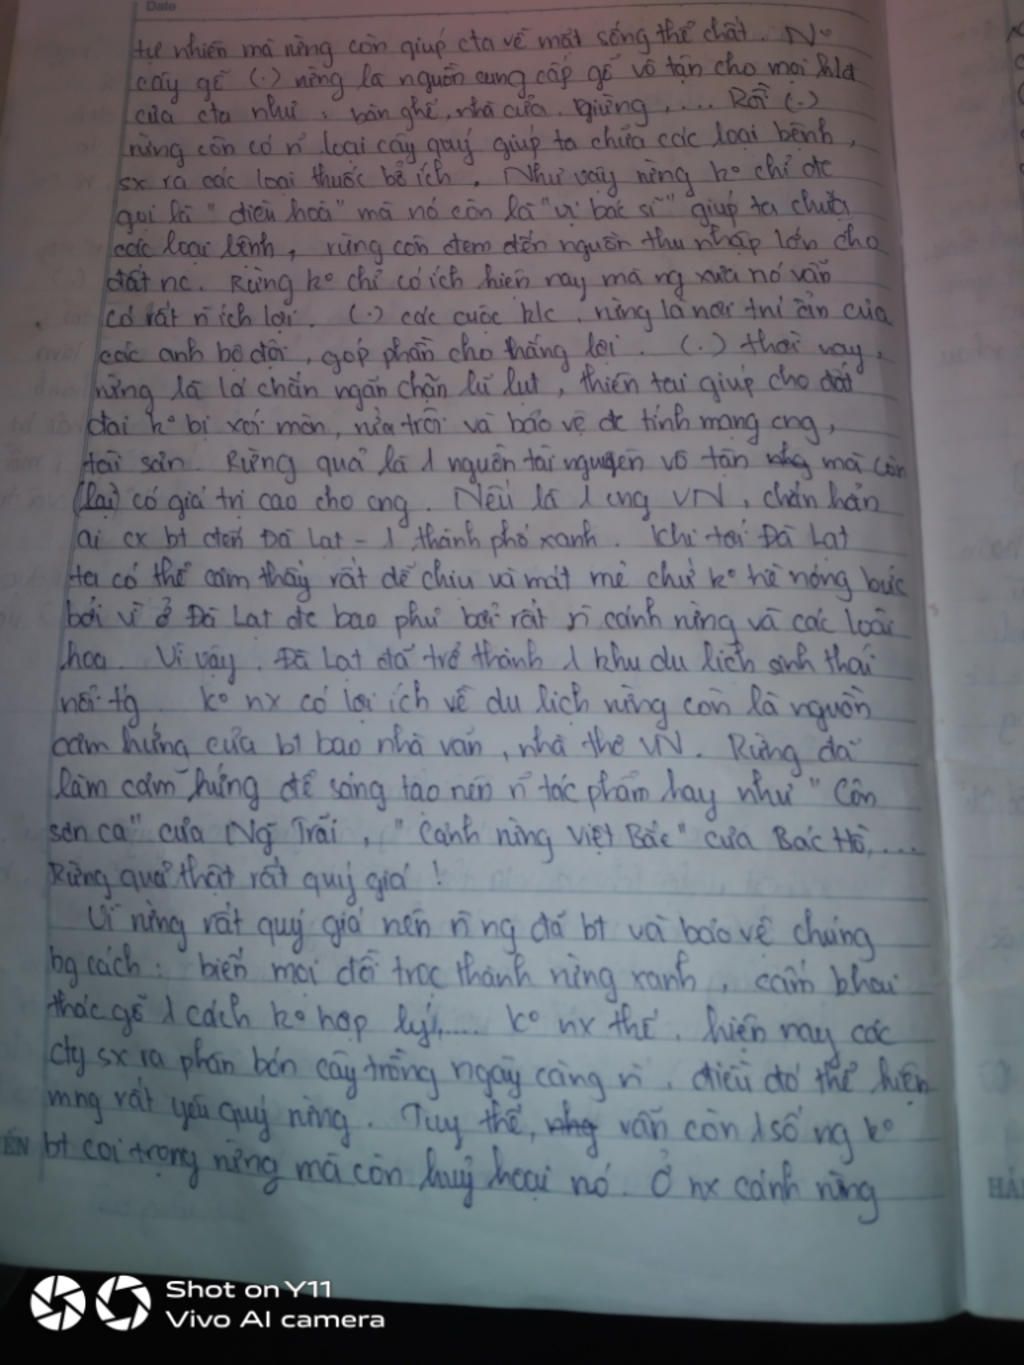 Date
tự nhiên mà rừng còn giúp cta về mặt sống thể chất. Nº
cây gỗ (.) rừng là nguồn cung cấp gỗ vô tận cho mọi
của cta như: bàn ghế, nhà cửa, giường, .... Rồi (.)
rừng còn có n̄ loại cây quý giúp ta chữa các loại bệnh,
sx ra các loại thuốc bổ ích. Như vậy rừng kº chỉ đc
gọi là "điều hoà" mà nó còn là "vị bác sĩ" giúp ta chữa
các loại bệnh, rừng còn đem đến nguồn thu nhập lớn cho
đất nc. Rừng kº chỉ có ích hiện nay mà ng xưa nó vẫn
có rất n̄ ích lợi. (.) các cuộc k/c, rừng là nơi trú ẩn của
các anh bộ đội, góp phần cho thắng lợi. (.) thời nay,
rừng là lá chắn ngăn chặn lũ lụt, thiên tai giúp cho đất
đai kº bị xói mòn, rửa trôi và bảo vệ đc tính mạng cng,
tài sản. Rừng quả là 1 nguồn tài nguyên vô tận nhg mà còn
(lại) có giá trị cao cho cng. Nếu là 1 cng VN, chắn hẳn
ai cx bt đến Đà Lạt - 1 thành phố xanh. Khi tới Đà Lạt
ta có thể cảm thấy rất dễ chịu và mát mẻ chứ kº hề nóng bức
bởi vì ở Đà Lạt đc bao phủ bởi rất n̄ cánh rừng và các loài
hoa. Vì vậy, Đà Lạt đã trở thành 1 khu du lịch sinh thái
nổi tg. Kº nx có lợi ích về du lịch rừng còn là nguồn
cảm hứng của bt bao nhà văn, nhà thơ VN. Rừng đã
làm cảm hứng để sáng tạo nên n̄ tác phẩm hay như "Côn
sơn ca" của Ng Trãi, "Cảnh rừng Việt Bắc" của Bác Hồ,....
Rừng quả thật rất quý giá!
Vì rừng rất quý giá nên n̄ ng đã bt và bảo vệ chúng
bg cách: biến mọi đồi trọc thành rừng xanh, cấm khai
thác gỗ 1 cách kº hợp lý,.... Kº nx thế, hiện nay các
cty sx ra phân bón cây trồng ngày càng n̄, điều đó thể hiện
mng rất yêu quý rừng. Tuy thế, nhg vẫn còn 1 số ng kº
bt coi trọng rừng mà còn huỷ hoại nó. Ở nx cánh rừng
Shot on Y11
Vivo AI camera